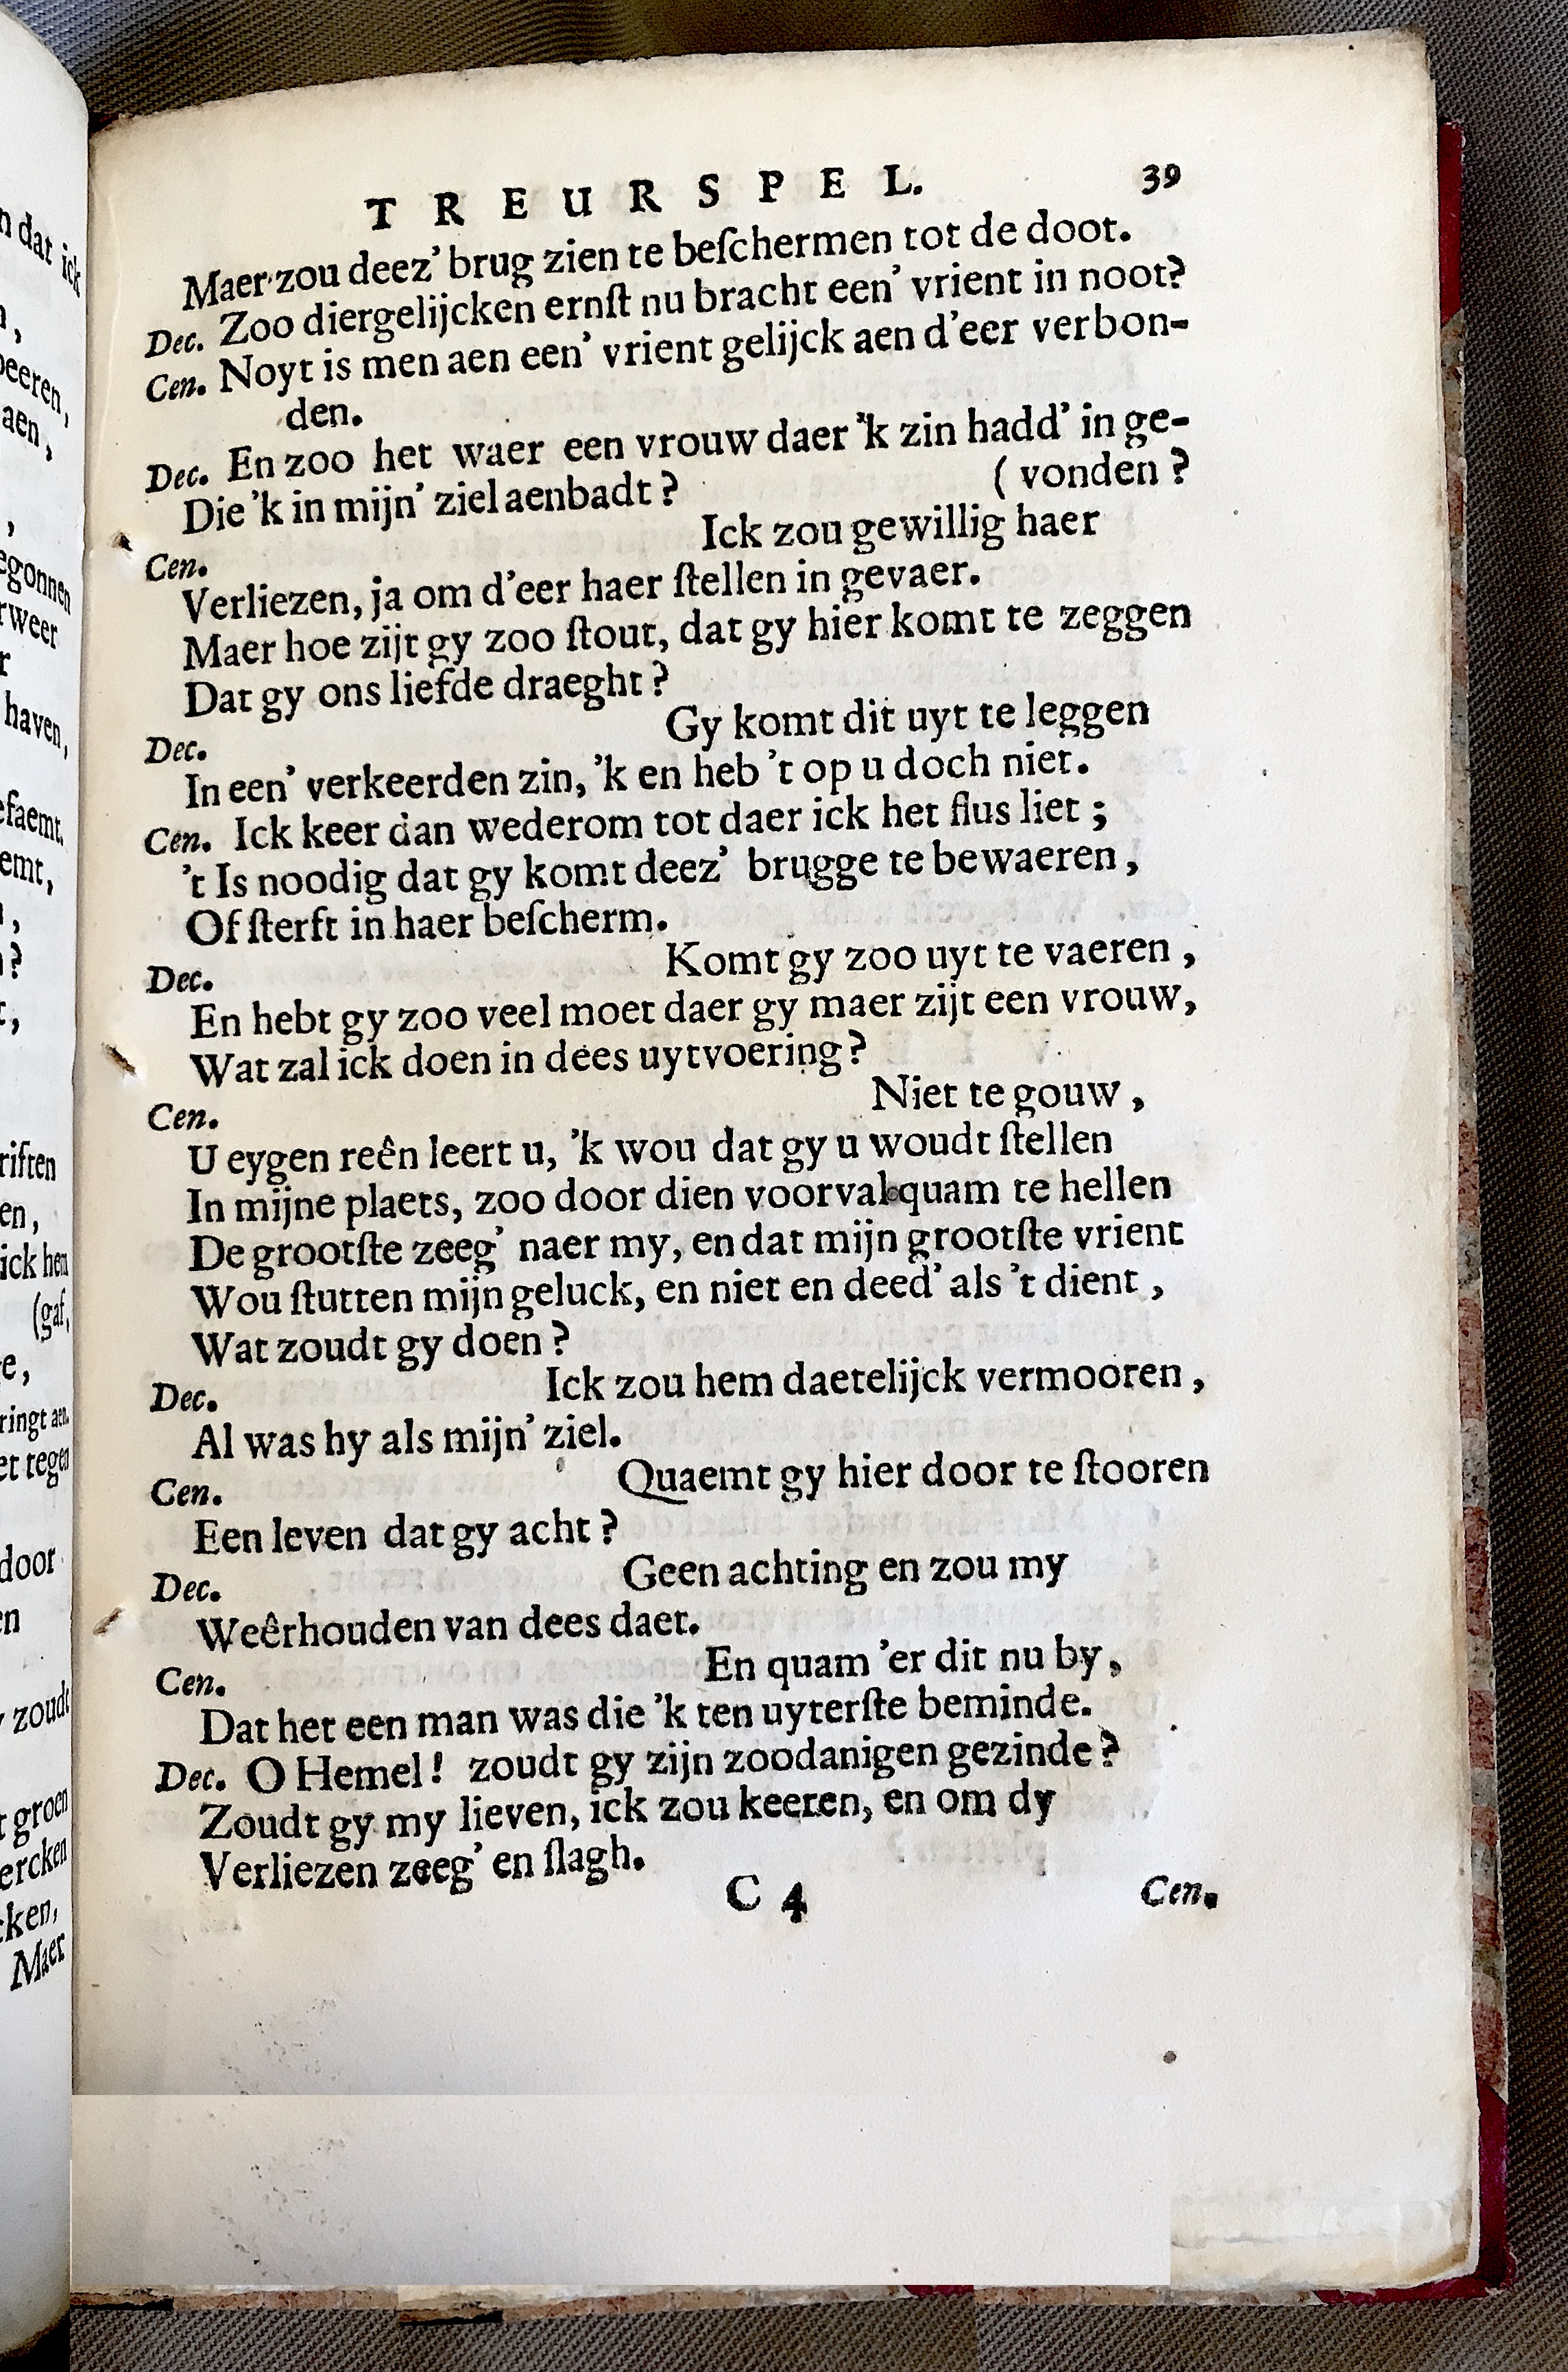 TREURSPEL. 39
Maer zou deez' brug zien te beſchermen tot de doot.
Dec. Zoo diergelijcken ernſt nu bracht een' vrient in noot?
Cen. Noyt is men aen een' vrient gelijck aen d'eer verbon-
den.
Dec. En zoo het waer een vrouw daer 'k zin hadd' in ge-
Die 'k in mijn' ziel aenbadt? (vonden?
Cen. Ick zou gewillig haer
Verliezen, ja om d'eer haer ſtellen in gevaer.
Maer hoe zijt gy zoo ſtout, dat gy hier komt te zeggen
Dat gy ons liefde draeght?
Dec. Gy komt dit uyt te leggen
In een' verkeerden zin, 'k en heb 't op u doch niet.
Cen. Ick keer dan wederom tot daer ick het flus liet;
't Is noodig dat gy komt deez' brugge te bewaeren,
Of ſterft in haer beſcherm.
Dec. Komt gy zoo uyt te vaeren,
En hebt gy zoo veel moet daer gy maer zijt een vrouw,
Wat zal ick doen in dees uytvoering?
Cen. Niet te gouw,
U eygen reên leert u, 'k wou dat gy u woudt ſtellen
In mijne plaets, zoo door dien voorval quam te hellen
De grootſte zeeg' naer my, en dat mijn grootſte vrient
Wou ſtutten mijn geluck, en niet en deed' als 't dient,
Wat zoudt gy doen?
Dec. Ick zou hem daetelijck vermooren,
Al was hy als mijn' ziel.
Cen. Quaemt gy hier door te ſtooren
Een leven dat gy acht?
Dec. Geen achting en zou my
Weêrhouden van dees daet.
Cen. En quam 'er dit nu by,
Dat het een man was die 'k ten uyterſte beminde.
Dec. O Hemel! zoudt gy zijn zoodanigen gezinde?
Zoudt gy my lieven, ick zou keeren, en om dy
Verliezen zeeg' en ſlagh.
C 4 Cen.